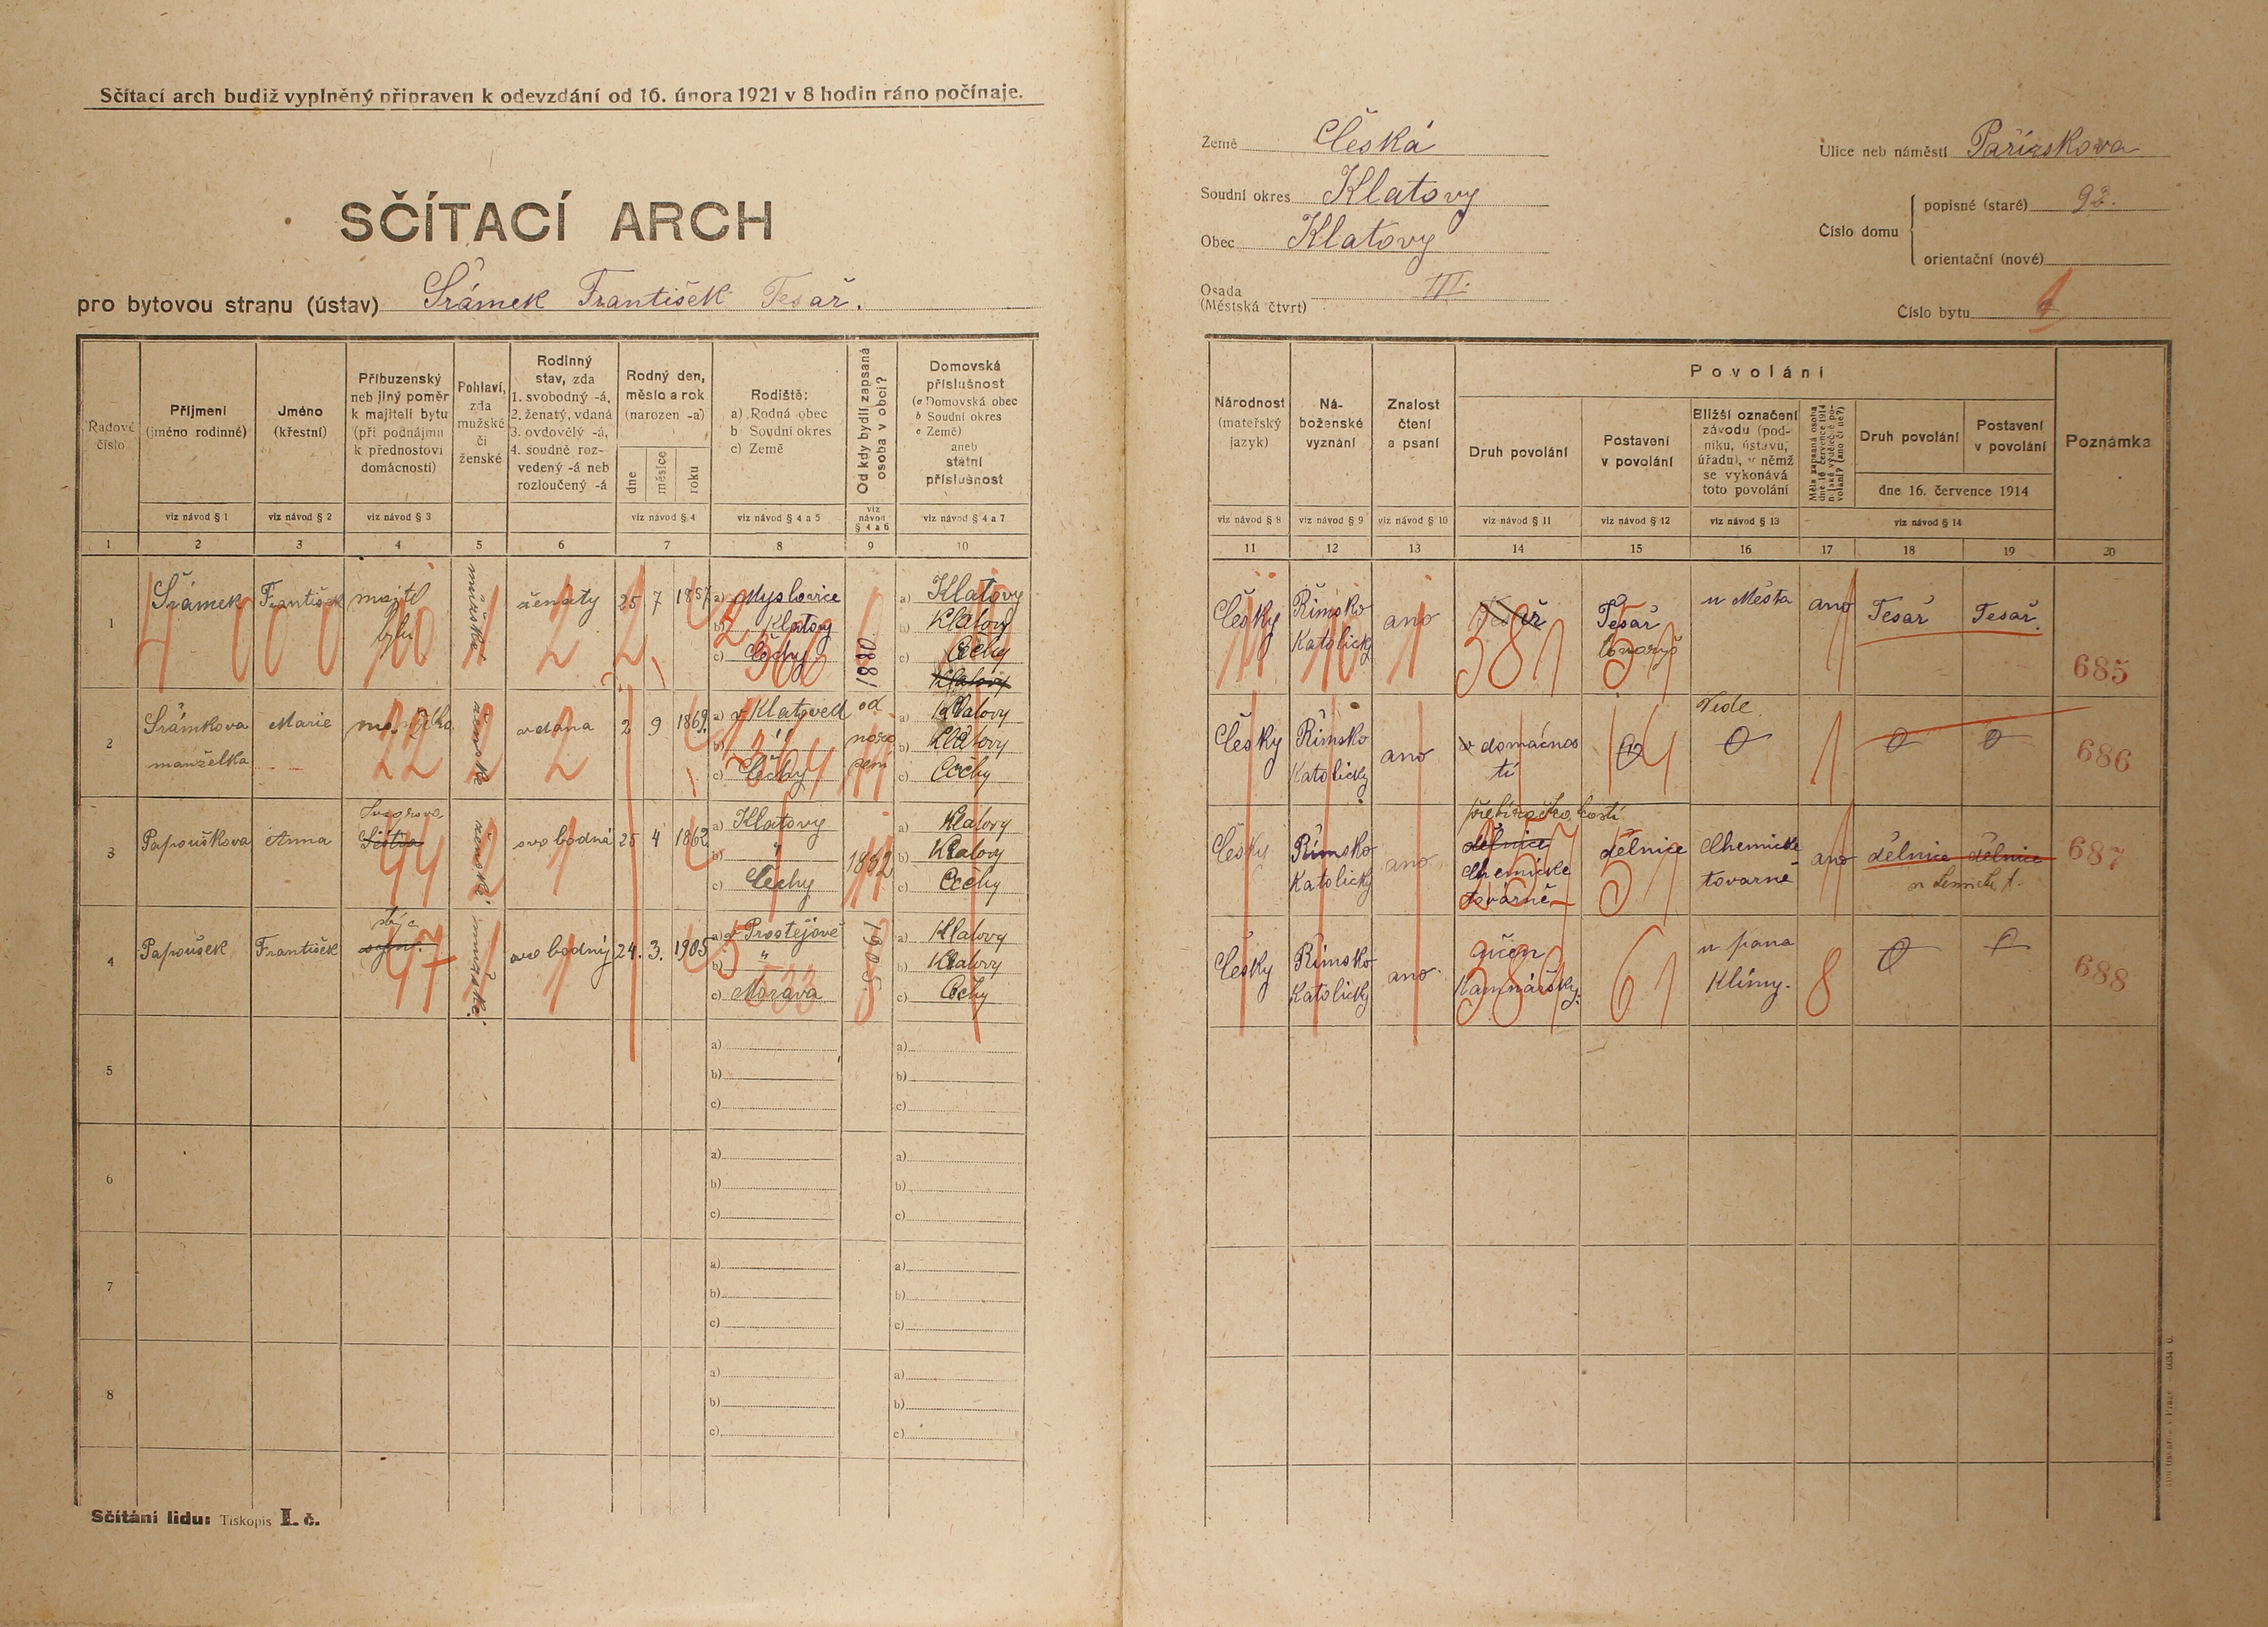 Sčítací arch budiž vyplněný připraven k odevzdání od 16. února 1921 v 8 hodin ráno počínaje.
SČÍTACÍ ARCH
pro bytovou stranu (ústav) Šrámek František Tesař.
Země Česká
Soudní okres Klatovy
Obec Klatovy
Osada (Městská čtvrt) III.
Ulice neb náměstí Pařízskova
Číslo domu
popisné (staré) 92.
orientační (nové)
Číslo bytu 1
Řadové číslo
Příjmení (jméno rodinné)
Jméno (křestní)
Příbuzenský neb jiný poměr k majiteli bytu (při podnájmu k přednostovi domácnosti)
Pohlaví, zda mužské či ženské
Rodinný stav, zda 1. svobodný -á, 2. ženatý, vdaná 3. ovdovělý -á, 4. soudně rozvedený -á neb rozloučený -á
Rodný den, měsíc a rok (narozen -a)
dne měsíce roku
Rodiště: a) Rodná obec b) Soudní okres c) Země
Od kdy bydlí zapsaná osoba v obci?
Domovská příslušnost (a Domovská obec b Soudní okres c Země) aneb státní příslušnost
viz návod § 1
viz návod § 2
viz návod § 3
viz návod § 4
viz návod § 4 a 5
viz návod § 4 a 6
viz návod § 4 a 7
1 2 3 4 5 6 7 8 9 10
Národnost (mateřský jazyk)
Náboženské vyznání
Znalost čtení a psaní
Povolání
Druh povolání
Postavení v povolání
Bližší označení závodu (podniku, ústavu, úřadu), v němž se vykonává toto povolání
Měla zapsaná osoba dne 16. července 1914 nějaké výdělečné povolání? (ano či ne?)
Druh povolání
Postavení v povolání
dne 16. července 1914
Poznámka
viz návod § 8
viz návod § 9
viz návod § 10
viz návod § 11
viz návod § 12
viz návod § 13
viz návod § 14
11 12 13 14 15 16 17 18 19 20
1 Šrámek František majtl bytu mužské ženatý 25 7 1857 a) Myslovice b) Klatovy c) Čechy 1880 a) Klatovy b) Klatovy c) Čechy Klatovy
Česky Římsko Katolický ano Tesař Tesař tovaryš u Města ano Tesař Tesař. 685
2 Šrámkova manželka Marie manželka ženské vdana 2 9 1869. a) v Klatovech b) " c) Čechy od naro zení a) Klatovy b) Klatovy c) Čechy
Česky Římsko Katolický ano v domácnos ti 0 0 0 0 686
3 Papouškova Anna Švagrova ženské svobodná 25 4 1862 a) Klatovy b) " c) Čechy 1882 a) Klatovy b) Klatovy c) Čechy
Česky Římsko Katolický ano dělnice Chemické továrně dělnice Chemické tovarně ano dělnice dělnice 687
4 Papoušek František mužské svobodný 24. 3. 1905 a) v Prostějově b) " c) Morava 1905 a) Klatovy b) Klatovy c) Čechy
Česky Římsko Katolický ano. učen Kamnářský. 61 u pana Klímy. 8 0 0 688
5 a) b) c) a) b) c)
6 a) b) c) a) b) c)
7 a) b) c) a) b) c)
8 a) b) c) a) b) c)
Sčítání lidu: Tiskopis I. č.